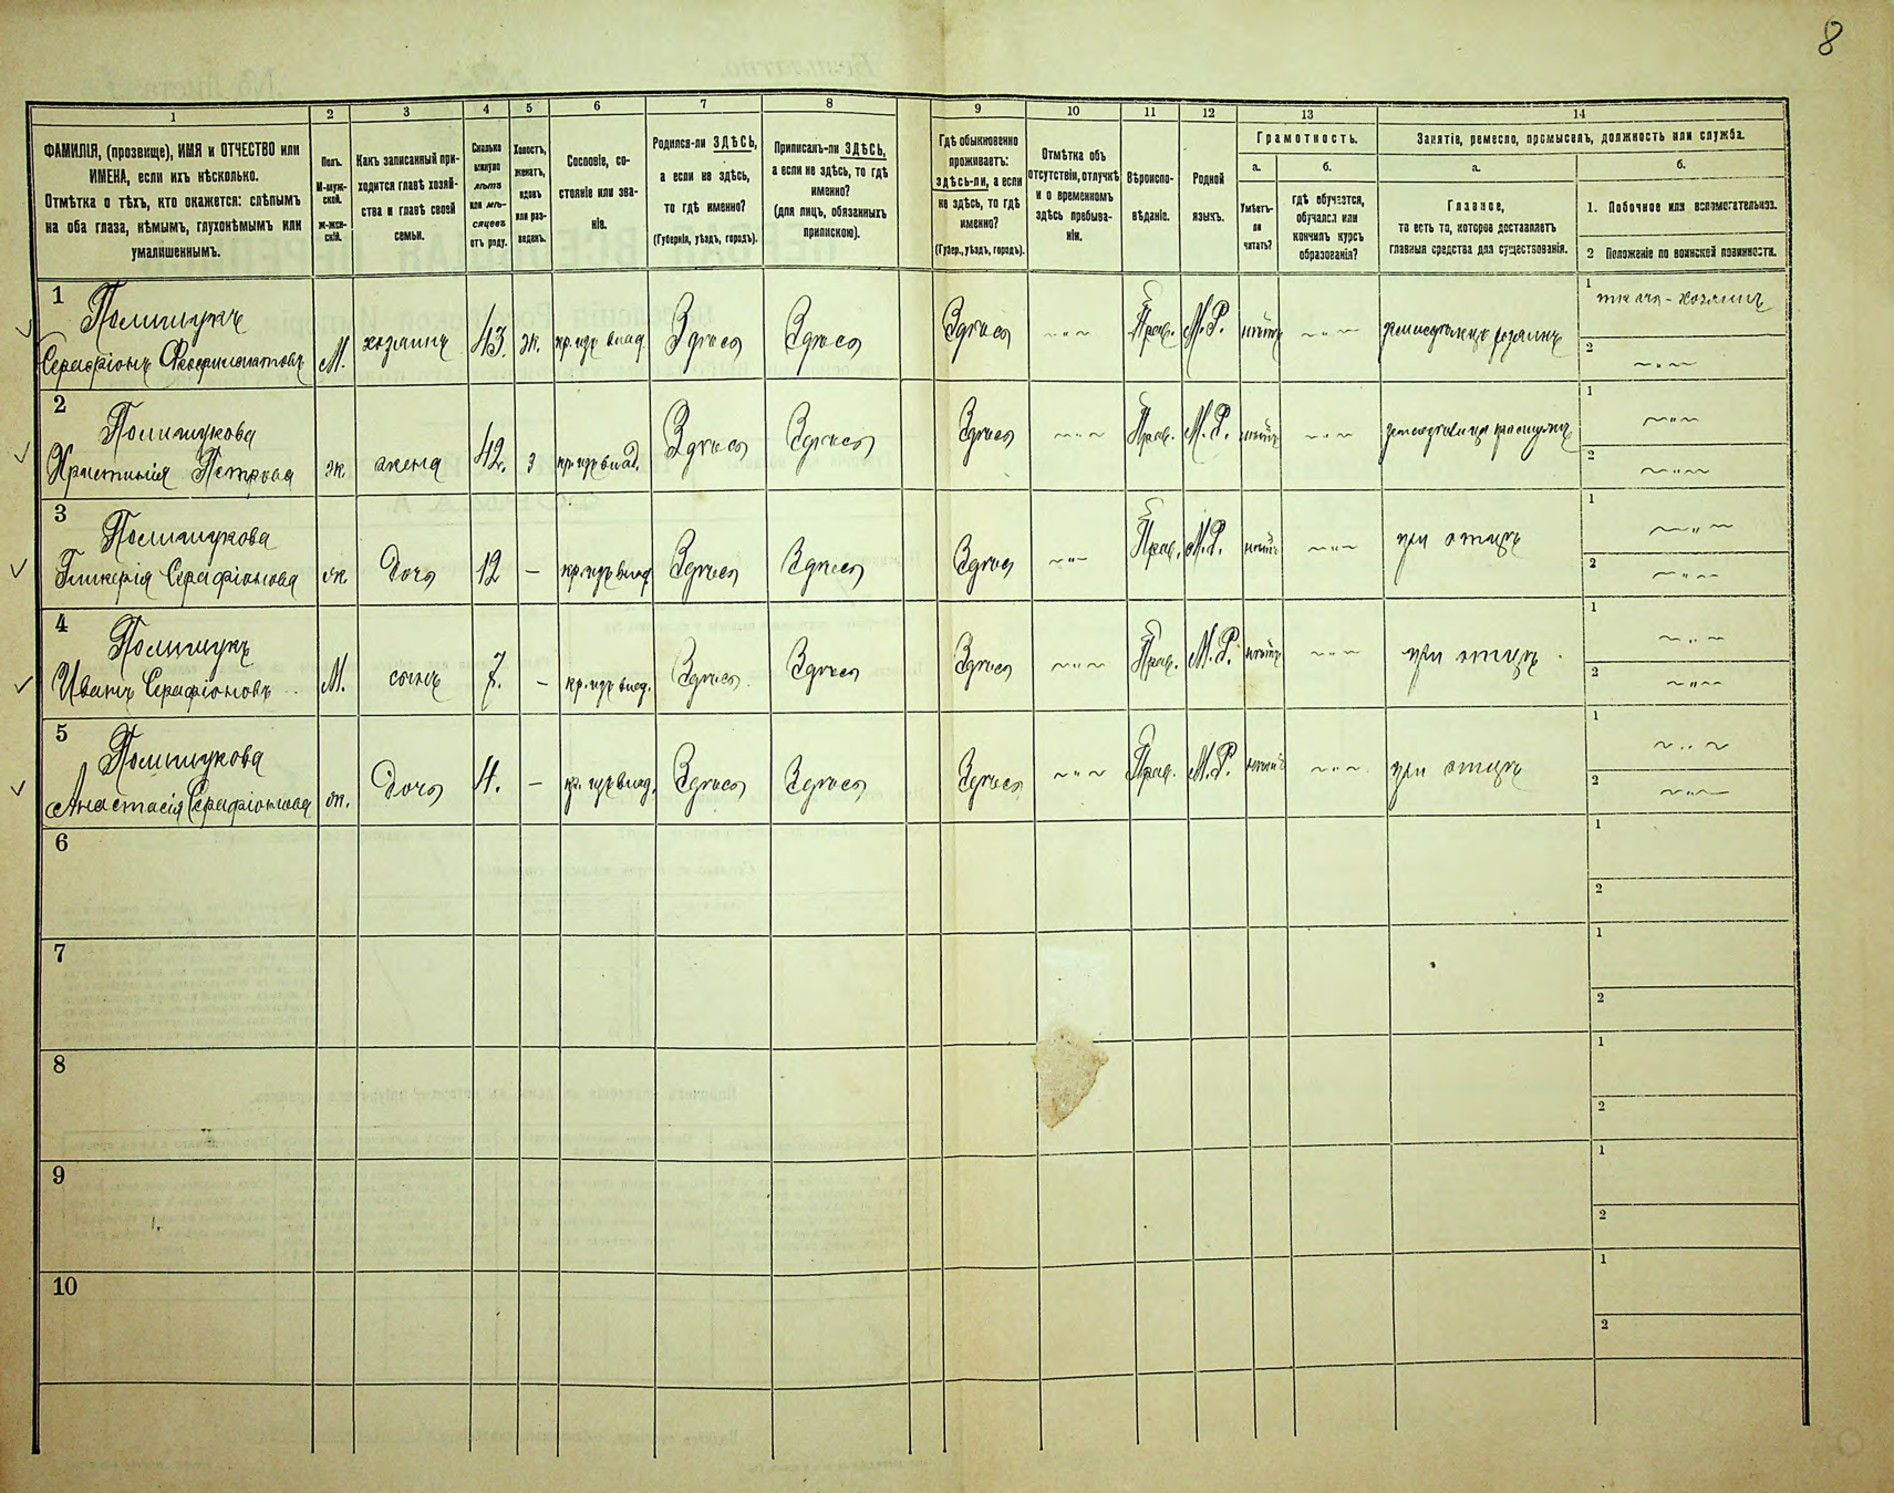 8
1 2 3 4 5 6 7 8 9 10 11 12 13 14
ФАМИЛІЯ, (прозвище), ИМЯ и ОТЧЕСТВО или
ИМЕНА, если ихъ нѣсколько.
Отмѣтка о тѣхъ, кто окажется: слѣпымъ
на оба глаза, нѣмымъ, глухонѣмымъ или
умалишеннымъ.
Полъ.
М-муж-
ской.
Ж-жен-
скій.
Какъ записанный при-
ходится главѣ хозяй-
ства и главѣ своей
семьи.
Сколько
минуло
лѣтъ
или мѣ-
сяцевъ
отъ роду.
Холостъ,
женатъ,
вдовъ
или раз-
веденъ.
Сословіе, со-
стояніе или зва-
ніе.
Родился-ли ЗДѢСЬ,
а если не здѣсь,
то гдѣ именно?
(Губернія, уѣздъ, городъ).
Приписанъ-ли ЗДѢСЬ,
а если не здѣсь, то гдѣ
именно?
(для лицъ, обязанныхъ
припискою).
Гдѣ обыкновенно
проживаетъ:
здѣсь-ли, а если
не здѣсь, то гдѣ
именно?
(Губер., уѣздъ, городъ).
Отмѣтка объ
отсутствіи, отлучкѣ
и о временномъ
здѣсь пребыва-
ніи.
Вѣроиспо-
вѣданіе.
Родной
языкъ.
Грамотность.
а.
Умѣетъ-
ли
читать?
б.
гдѣ обучается,
обучался или
кончилъ курсъ
образованія?
Занятіе, ремесло, промыселъ, должность или служба.
а.
Главное,
то есть то, которое доставляетъ
главныя средства для существованія.
б.
1. Побочное или вспомогательное.
2 Положеніе по воинской повинности.
1
Полищукъ
Серафіонъ
М. хозяинъ 43. ж. Здѣсь Здѣсь Здѣсь Прав. М.Р. нѣтъ
1
2
2
Полищукова
Христинія Петрова
ж. жена 42. з Здѣсь Здѣсь Здѣсь Прав. М.Р. нѣтъ
1
2
3
Полищукова
Гликерія Серафіонова
ж. дочь 12 — Здѣсь Здѣсь Здѣсь Прав. М.Р. нѣтъ при отцѣ
1
2
4
Полищукъ
Иванъ Серафіоновъ
М. сынъ 7. — Здѣсь Здѣсь Здѣсь Прав. М.Р. нѣтъ при отцѣ
1
2
5
Полищукова
Анастасія Серафіонова
ж. дочь 4. — Здѣсь Здѣсь Здѣсь Прав. М.Р. нѣтъ при отцѣ
1
2
6
1
2
7
1
2
8
1
2
9
1
2
10
1
2